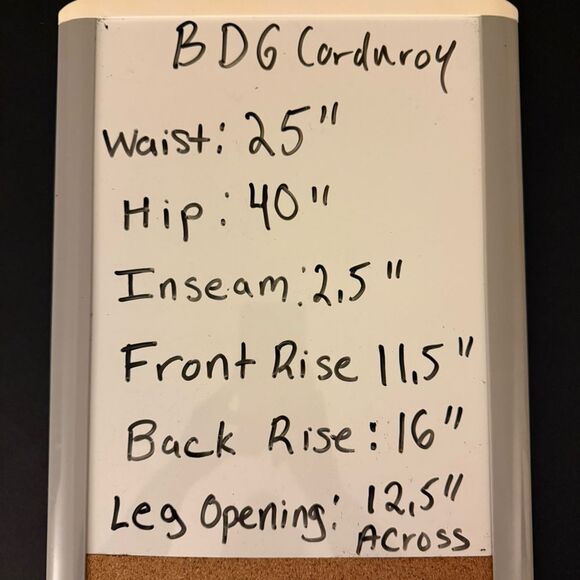 BDG Corduroy
Waist: 25"
Hip: 40"
Inseam: 2.5"
Front Rise 11.5"
Back Rise: 16"
Leg Opening: 12.5"
Across